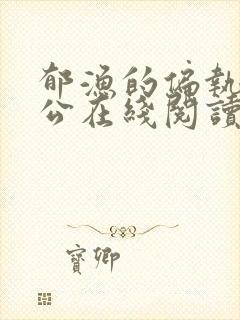 郁漁的偏執
公在綫閱讀
寶卿